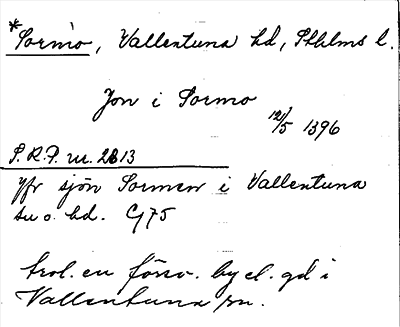 *Sormo, Vallentuna hd, Sthlms l.
Jon i Sormo
12/5 1396
S.R.P. nr. 2813
Jfr sjön Sormen i Vallentuna
sn o. hd. G75
trol. en försv. by el. gd i
Vallentuna sn.